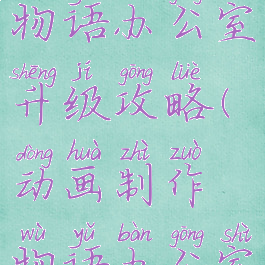 物语办公室
shēng jí gōng lüè
升级攻略(
dòng huà zhì zuò
动画制作
wù yǔ bàn gōng shì
物语办公室